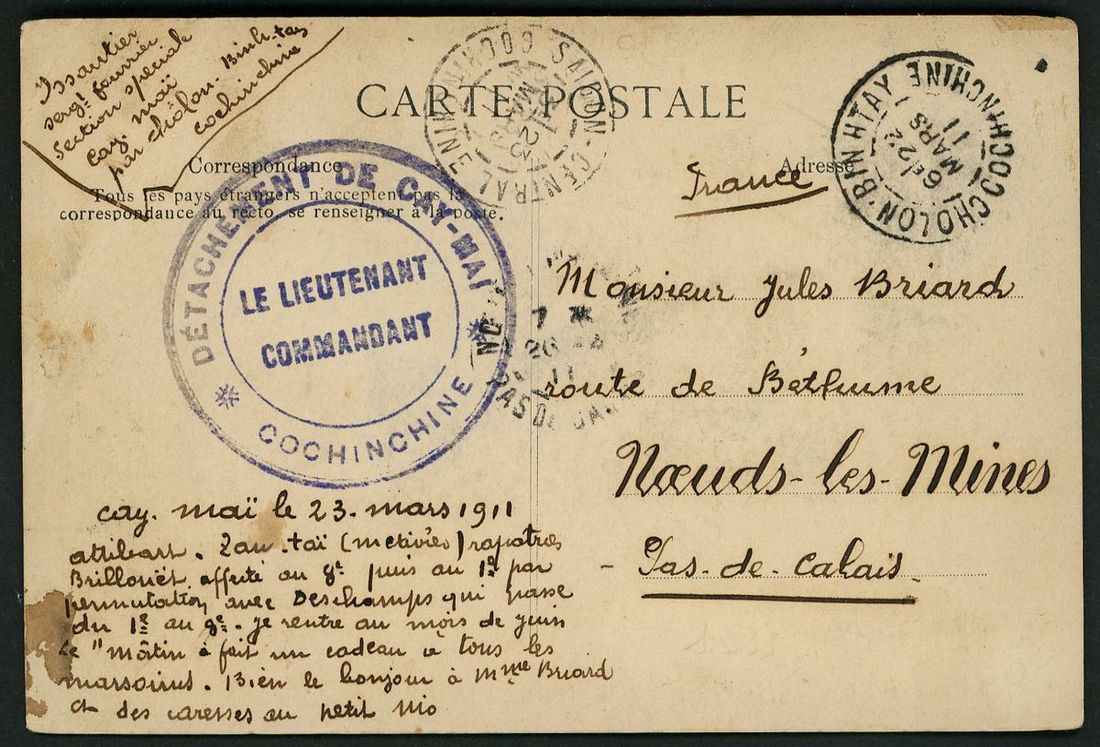 Issautier
sergt fourrier
Section speciale
Cay. maï
par chôlon. Binh-tay
cochinchine
SAIGON-CENTRAL
COCHINCHINE
MARS
CARTE POSTALE
CHOLON-BINHTAY
6E 22
MARS
11
COCHINCHINE
Correspondance
Tous les pays étrangers n'acceptent pas la
correspondance au recto, se renseigner à la poste.
Adresse
France
DÉTACHEMENT DE CAY-MAI
LE LIEUTENANT
COMMANDANT
COCHINCHINE
7
11
PAS DE
Monsieur Jules Briard
route de Béthume
Nœuds-les-Mines
- Pas-de-Calais.
Cay. maï le 23. mars 1911
attibart. Zau-taï (metivier) rapatrés
Brillouët affecté au 9e puis au 1er par
permutation avec Deschamps qui passe
du 1er au 9e. je rentre au mois de juin
Le "mâtin à fait un cadeau à tous les
marsouins. Bien le bonjour à Mme Briard
et des caresses au petit